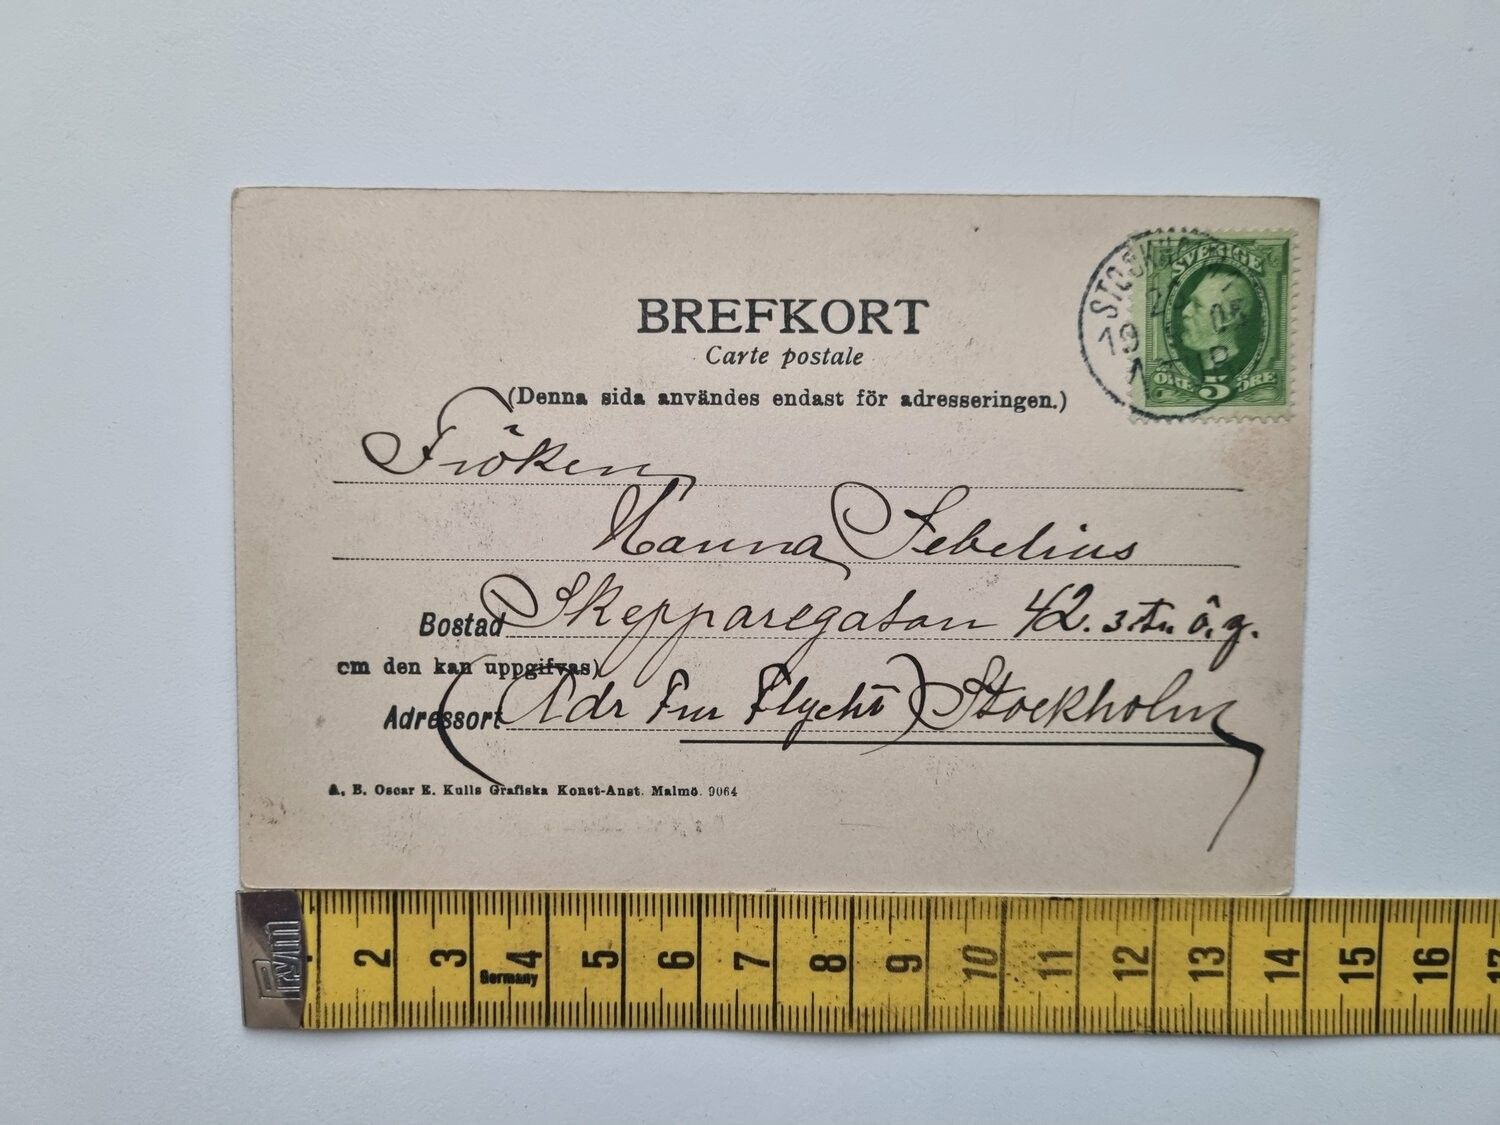 BREFKORT
Carte postale
(Denna sida användes endast för adresseringen.)
SVERIGE
5
ÖRE ÖRE
Fröken
Hanna Sebelius
Bostad Skepparegatan 42. 3. tr. ö. g.
om den kan uppgifvas)
Adressort (Adr Fru Flycht) Stockholm
A. B. Oscar E. Kulls Grafiska Konst-Anst. Malmö. 9064
Prym
2 3 4 5 6 7 8 9 10 11 12 13 14 15 16 17
Germany